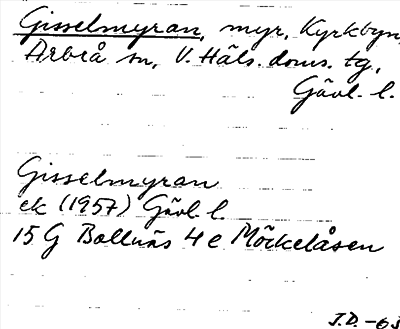 Gisselmyran, myr, Kyrkbyn,
Arbrå sn, V. Häls. doms. tg,
Gävl. l.
Gisselmyran
ek (1957) Gävl. l.
15 G Bollnäs 4 e Möckelåsen
J.D. -63